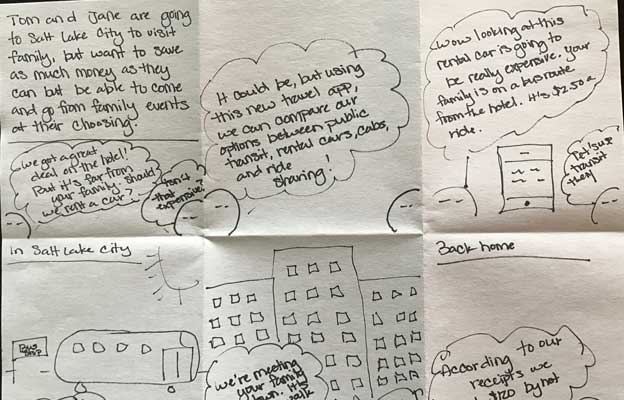 Tom and Jane are going
to Salt Lake City to visit
family, but want to save
as much money as they
can but be able to come
and go from family events
at their choosing.
we got a great
deal on the hotel!
But it's far from
your family. should
we rent a car?
Isn't
that
expensive?
It could be, but using
this new travel app,
we can compare our
options between public
transit, rental cars, cabs,
and ride
sharing!
Wow looking at this
rental car is going to
be really expensive. your
family is on a bus route
from the hotel. It's $2.50 a
ride.
Let's use
transit
then!
In Salt Lake City
Bus
stop
we're meeting
your family
It's
Back home
According to our
receipts we
$120 by not